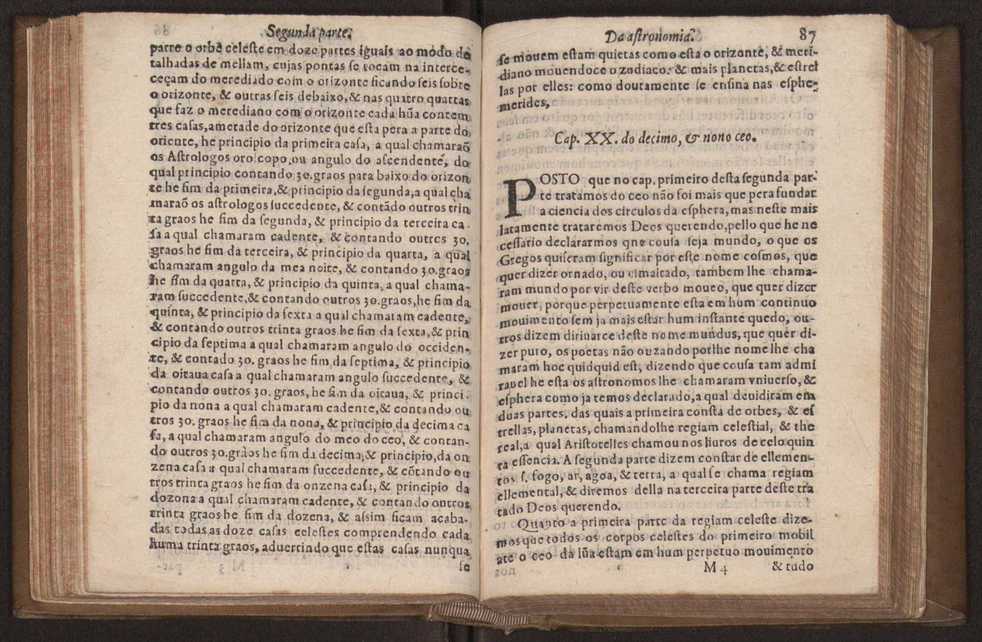 Segunda parte.
parte o orbe celeste em doze partes iguais ao modo de
talhadas de mellam, cujas pontas se tocam na interce-
ceçam do merediado com o orizonte ficando seis sobre
o orizonte, & outras seis debaixo, & nas quatro quartas
que faz o merediano com o orizonte cada hũa contem
tres casas, ametade do orizonte que esta pera a parte do
oriente, he principio da primeira casa, a qual chamaraõ
os Astrologos orocopo, ou angulo do ascendente, do
qual principio contando 30. graos para baixo do orizon
te he fim da primeira, & principio da segunda, a qual cha
maraõ os astrologos succedente, & contãdo outros trin
ta graos he fim da segunda, & principio da terceira ca
sa a qual chamaram cadente, & contando outros 30.
graos he fim da terceira, & principio da quarta, a qual
chamaram angulo da mea noite, & contando 30. graos
he fim da quarta, & principio da quinta, a qual chama-
ram succedente, & contando outros 30. graos, he fim da
quinta, & principio da sexta a qual chamaram cadente,
& contando outros trinta graos he fim da sexta, & prin
cipio da septima a qual chamaram angulo do occiden-
te, & contado 30. graos he fim da septima, & principio
da oitaua casa a qual chamaram angulo succedente, &
contando outros 30. graos, he fim da oitaua, & princi-
pio da nona a qual chamaram cadente, & contando ou
tros 30. graos he fim da nona, & principio da decima ca
sa, a qual chamaram angulo do meo do ceo, & contan-
do outros 30. graos he fim da decima, & principio, da on
zena casa a qual chamaram succedente, & cõtando ou
tros trinta graos he fim da onzena casa, & principio da
dozona a qual chamaram cadente, & contando outros
trinta graos he fim da dozena, & assim ficam acaba-
das todas as doze casas celestes comprendendo cada
huma trinta graos, aduertindo que estas casas nunqua
se
Da astronomia.
87
se mouem estam quietas como esta o orizonte, & meri-
diano mouendoce o zodiaco: & mais planetas, & estrel
las por elles: como doutamente se ensina nas esphe-
merides,
Cap. XX. do decimo, & nono ceo.
POSTO que no cap. primeiro desta segunda par-
te tratamos do ceo não foi mais que pera fundar
a ciencia dos circulos da esphera, mas neste mais
latamente trataremos Deos querendo, pello que he ne
cessario declararmos que cousa seja mundo, o que os
Gregos quiseram significar por este nome cosmos, que
quer dizer ornado, ou esmaltado, tambem lhe chama-
ram mundo por vir deste verbo moueo, que quer dizer
mouer, porque perpetuamente esta em hum continuo
mouimento sem ja mais estar hum instante quedo, ou-
tros dizem diriuarce deste nome mundus, que quer di-
zer puro, os poetas não ouzando porlhe nome lhe cha
maram hoc quidquid est, dizendo que cousa tam admi
rauel he esta os astronomos lhe chamaram vniuerso, &
esphera como ja temos declarado, a qual deuidiram em
duas partes, das quais a primeira consta de orbes, & es
trellas, planetas, chamandolhe regiam celestial, & ethe
real, a qual Aristotelles chamou nos liuros de celo quin
ta essencia. A segunda parte dizem constar de ellemen-
tos s. fogo, ar, agoa, & terra, a qual se chama regiam
ellemental, & diremos della na terceira parte deste tra
tado Deos querendo.
Quanto a primeira parte da regiam celeste dize-
mos que todos os corpos celestes do primeiro mobil
ate o ceo da lũa estam em hum perpetuo mouimento
M 4
& tudo